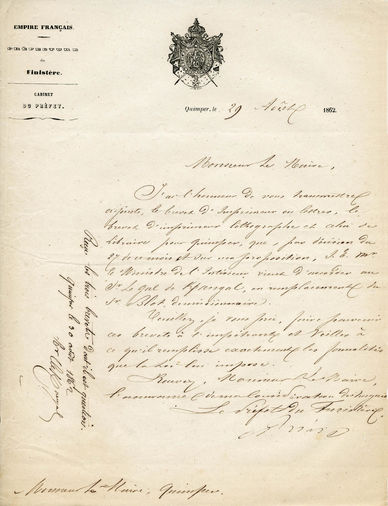 EMPIRE FRANÇAIS.
PRÉFECTURE
du
Finistère.
CABINET
DU PRÉFET.
Quimper, le 29 Août 1862.
Monsieur le Maire,
J'ai l'honneur de vous transmettre
ci-joints, le brevet d'Imprimeur en lettres, le
brevet d'imprimeur lithographe et celui de
libraire pour Quimper, que, par décision du
27 de ce mois et sur ma proposition, S. E. Mr
le Ministre de l'Intérieur vient d'accorder au
Sr en remplacement du
Sr Blot, démissionnaire.
Veuillez, je vous prie, faire parvenir
ces brevets à l'impétrant et veiller à
ce qu'il remplisse exactement les formalités
que la loi lui impose.
Recevez, Monsieur le Maire,
l'assurance de ma considération distinguée
Le Préfet du Finistère,
Monsieur le Maire, Quimper.
Reçu les trois brevets dont il est question.
Quimper le 30 août 1862